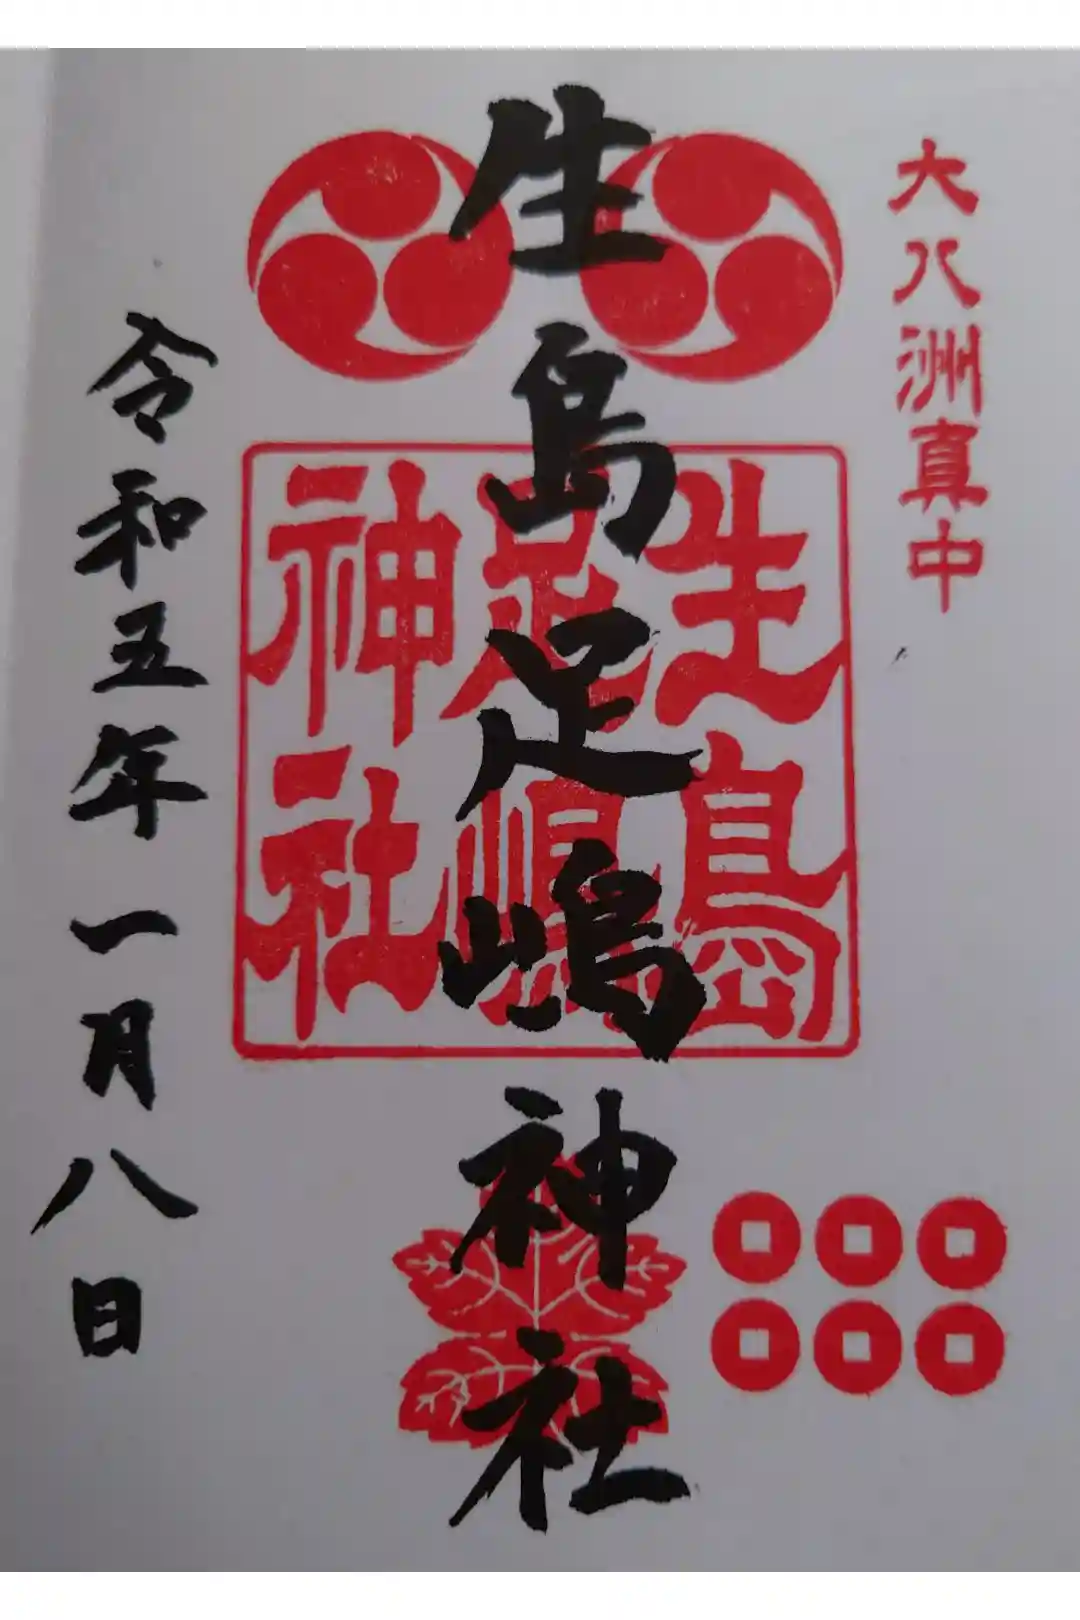 大八洲真中
生島足嶋神社
生島
足嶋
神社
令和五年一月八日